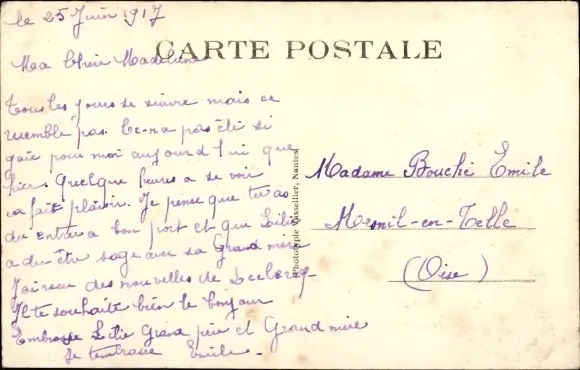 le 25 Juin 1917
CARTE POSTALE
Ma Chère Madeleine
Tous les jours se suivre mais ce
resemble pas. Ce-na pas été si
gaie pour moi aujourd'hui que
hier. Quelque heures a se voir
ca fait plaisir. Je pense que tu as
du entrer a bon port et que Lilie
a du être sage avec sa Grand mère
J'ai reau des nouvelles de Leclercq
Il te souhaite bien le bonjour
Embrasse Lilie Grand père et Grand mère
Je t'embrasse Emile -
Madame Bouclié Emile
Mesnil-en-Telle
(Oise)
Photographie Vassellier, Nantes